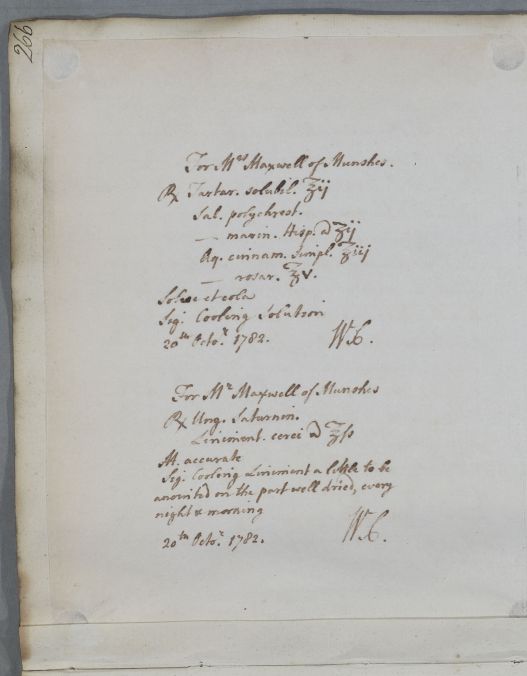 266
For Mrs Maxwell of Munshes.
℞ Tartar. solubil. ʒij
Sal. polychrest.
— marin. Hisp. a ʒij
Aq. cinnam. simpl. ℥iij
— rosar. ℥v.
Solve et cola
Sig. Cooling Solution
20th Octor. 1782. W.C.
For Mr Maxwell of Munshes
℞ Ung. Saturnin.
Liniment. cerei a ℥ss
M. accurate
Sig. Cooling Liniment a little to be
anointed on the part well dried, every
night & morning
20th Octor. 1782. W.C.